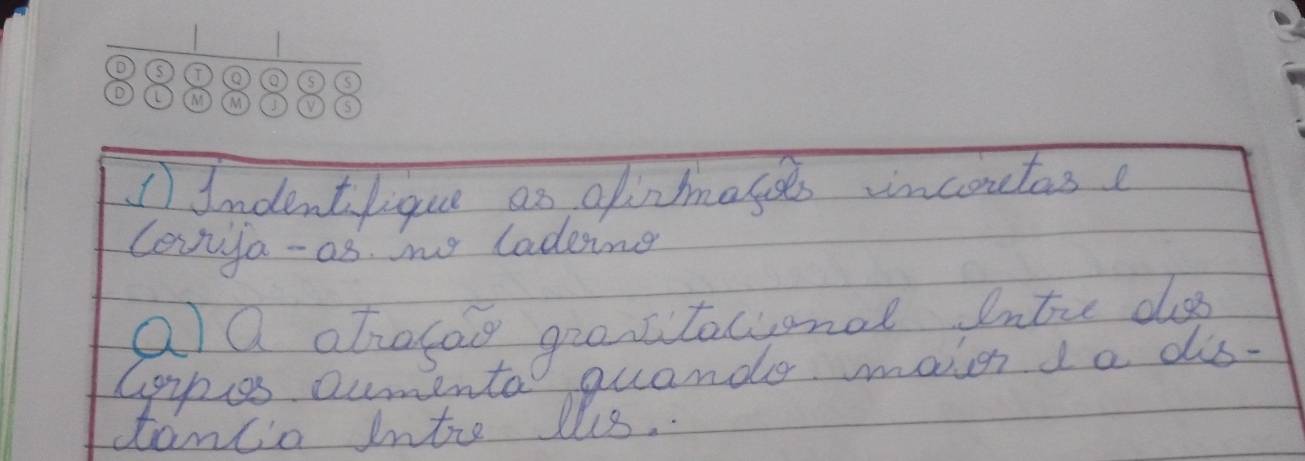 D S T Q Q S S
D L M M J V S
1) Indentifique as afirmações incoretas e
Corrija-as no Caderno
a) A atração gravitacional Entre dos
Corpos aumenta quando maior e a dis-
tancia Entre Eles.